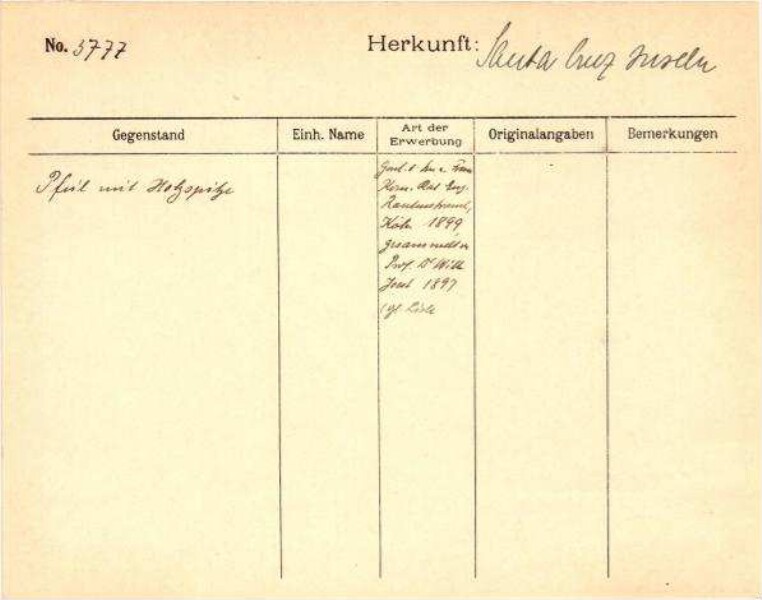 No. 3777
Herkunft: Santa Cruz Inseln
Gegenstand
Einh. Name
Art der
Erwerbung
Originalangaben
Bemerkungen
Pfeil mit Holzspitze
Frau
Kom. Rat Eug.
Rautenstrauch,
Köln 1899
gesammelt v.
Prof. Dr Wilh
Joest 1897